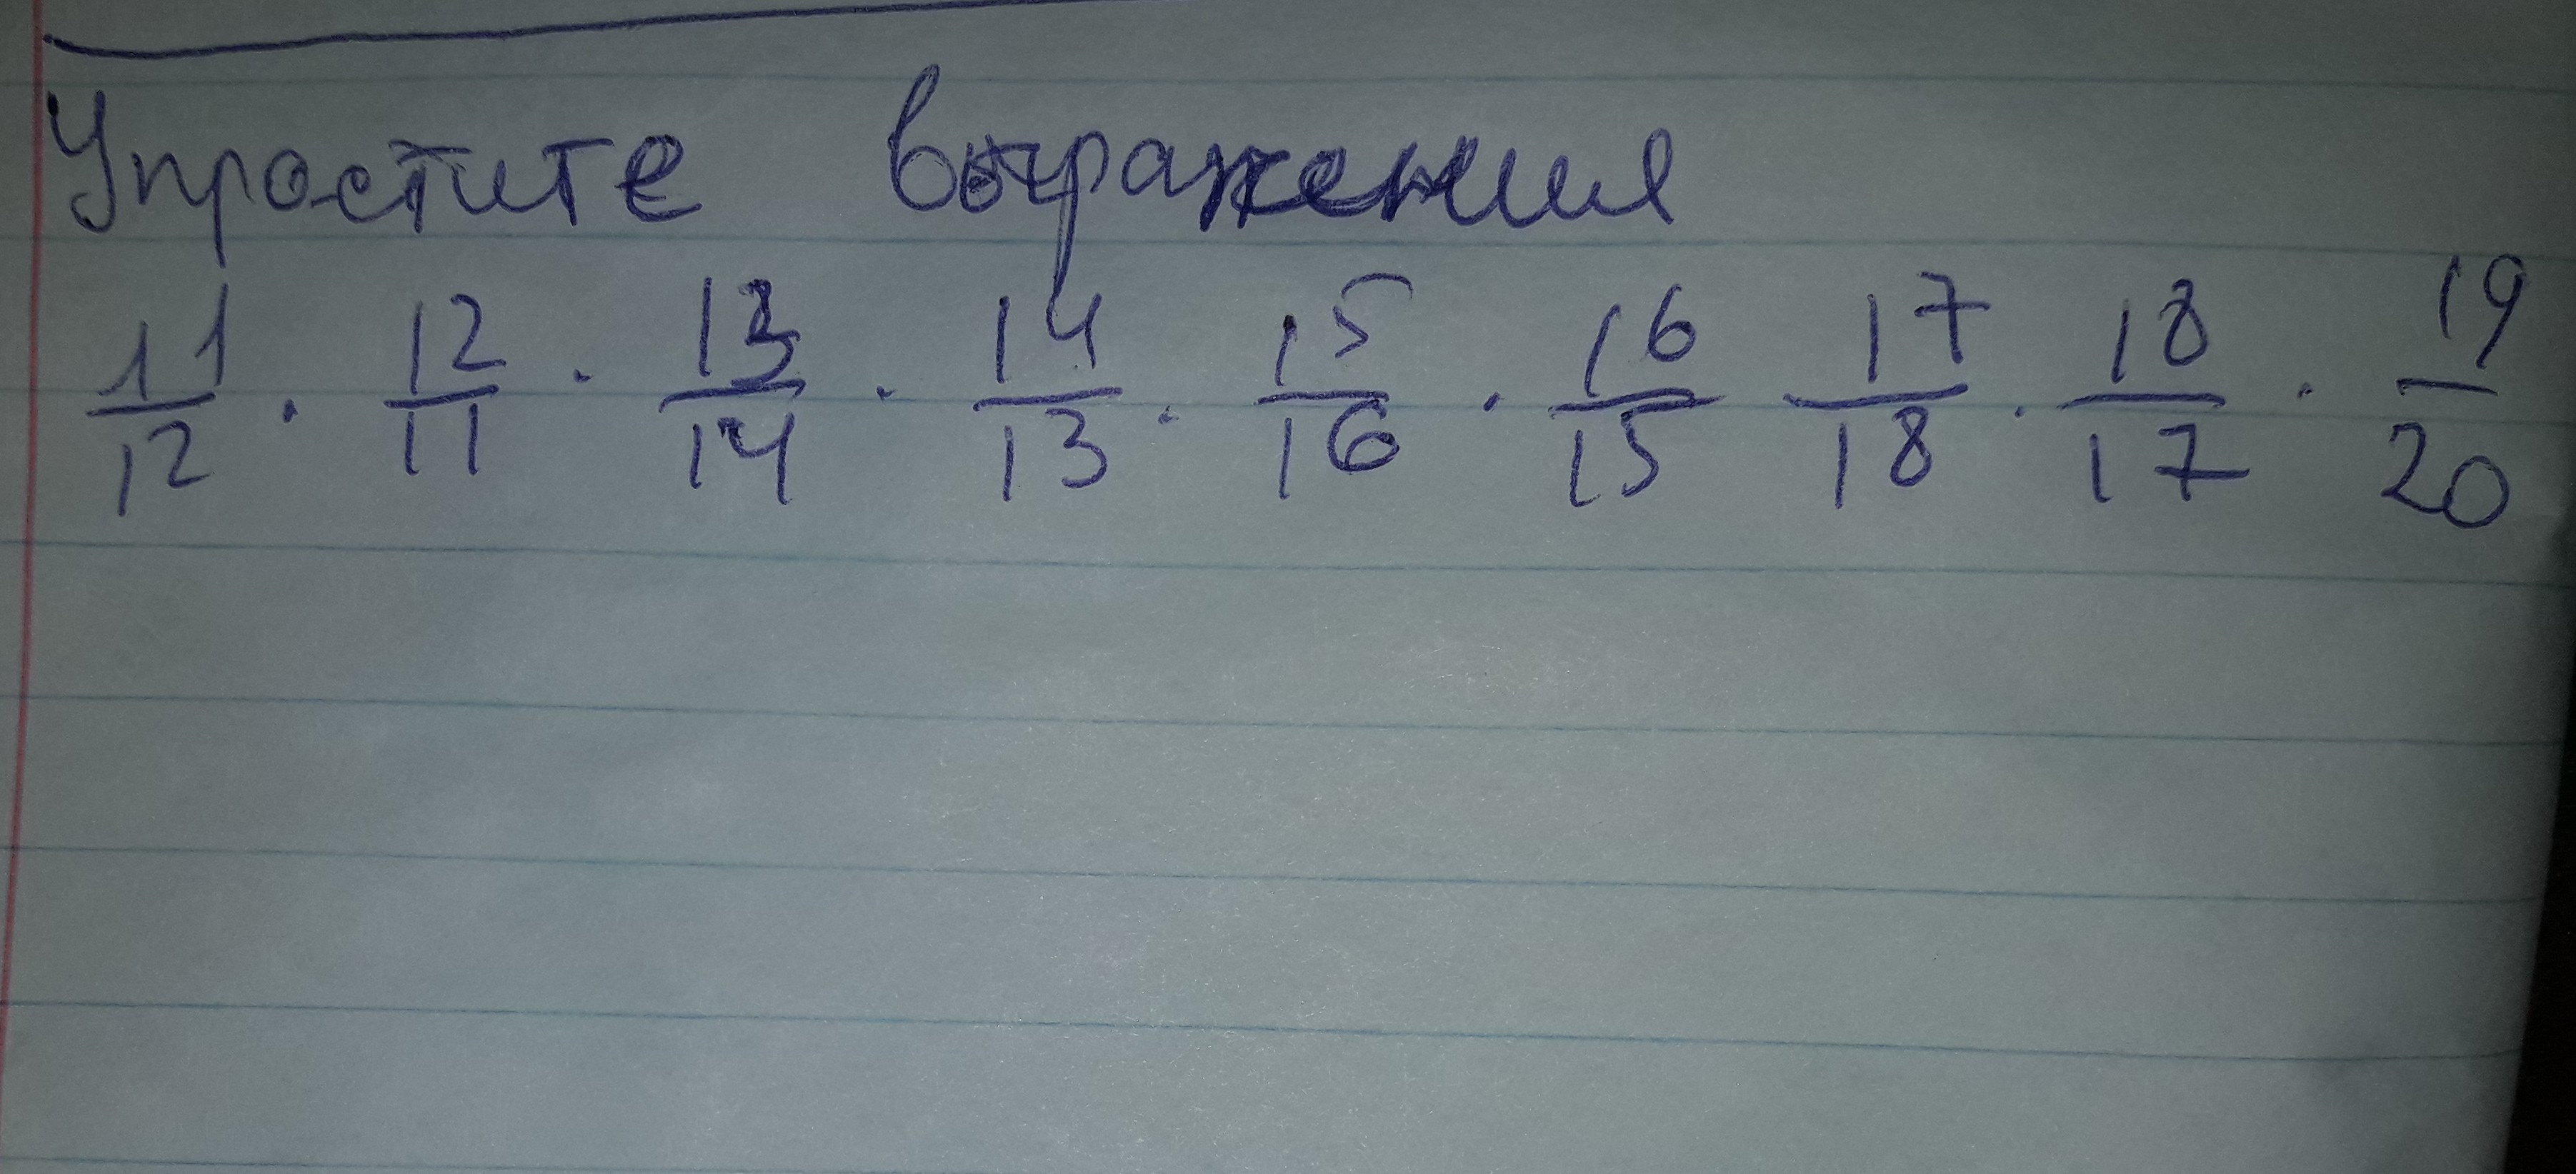 Упростите выражения
11/12 · 12/11 · 13/14 · 14/13 · 15/16 · 16/15 17/18 · 18/17 · 19/20